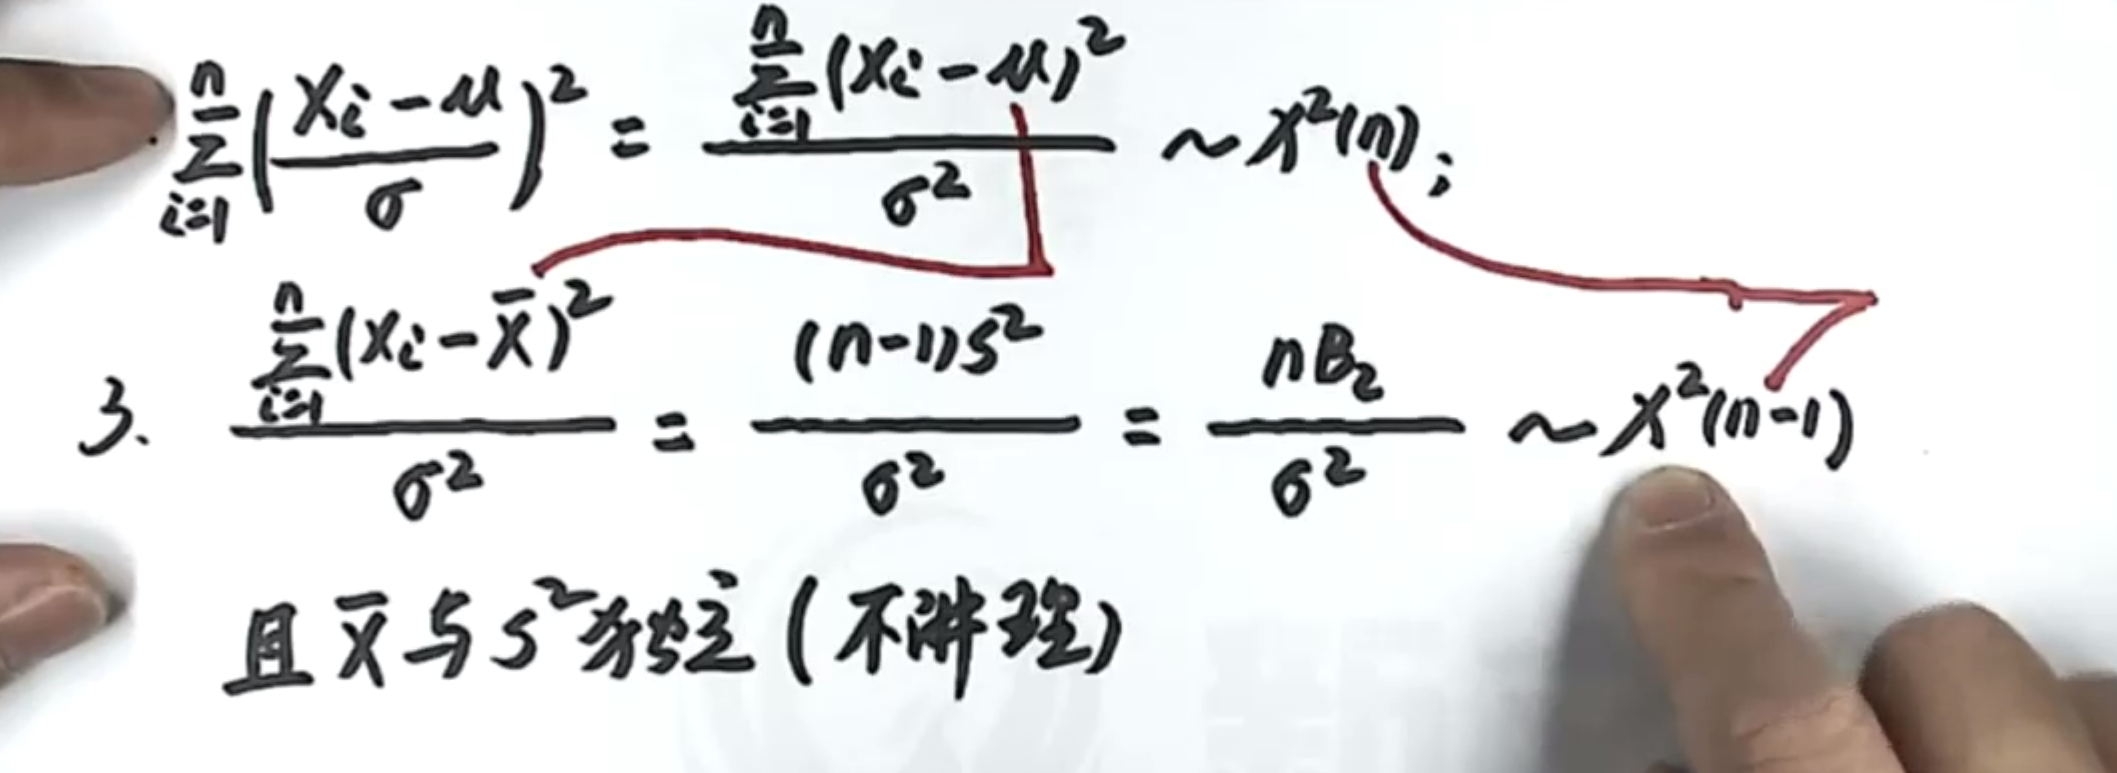 $\sum_{i=1}^{n}\left(\frac{X_i-\mu}{\sigma}\right)^2 = \frac{\sum_{i=1}^{n}(X_i-\mu)^2}{\sigma^2} \sim \chi^2(n);$
3. $\frac{\sum_{i=1}^{n}(X_i-\overline{X})^2}{\sigma^2} = \frac{(n-1)S^2}{\sigma^2} = \frac{nB_2}{\sigma^2} \sim \chi^2(n-1)$
且 $\overline{X}$ 与 $S^2$ 独立 (不讲理)